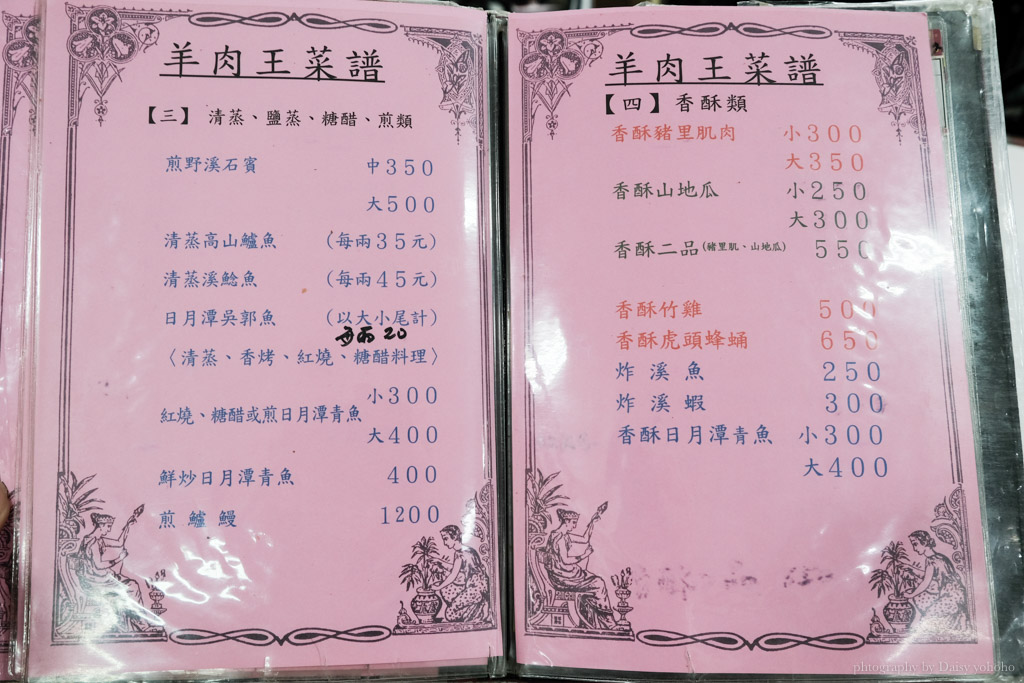 羊肉王菜譜
【三】 清蒸、鹽蒸、糖醋、煎類
煎野溪石賓 中350
大500
清蒸高山鱸魚 (每兩35元)
清蒸溪鯰魚 (每兩45元)
日月潭吳郭魚 (以大小尾計)
每兩 20
〈清蒸、香烤、紅燒、糖醋料理〉
小300
紅燒、糖醋或煎日月潭青魚
大400
鮮炒日月潭青魚 400
煎鱸鰻 1200
羊肉王菜譜
【四】香酥類
香酥豬里肌肉 小300
大350
香酥山地瓜 小250
大300
香酥二品(豬里肌、山地瓜) 550
香酥竹雞 500
香酥虎頭蜂蛹 650
炸溪魚 250
炸溪蝦 300
香酥日月潭青魚 小300
大400
photography by Daisy yohoho